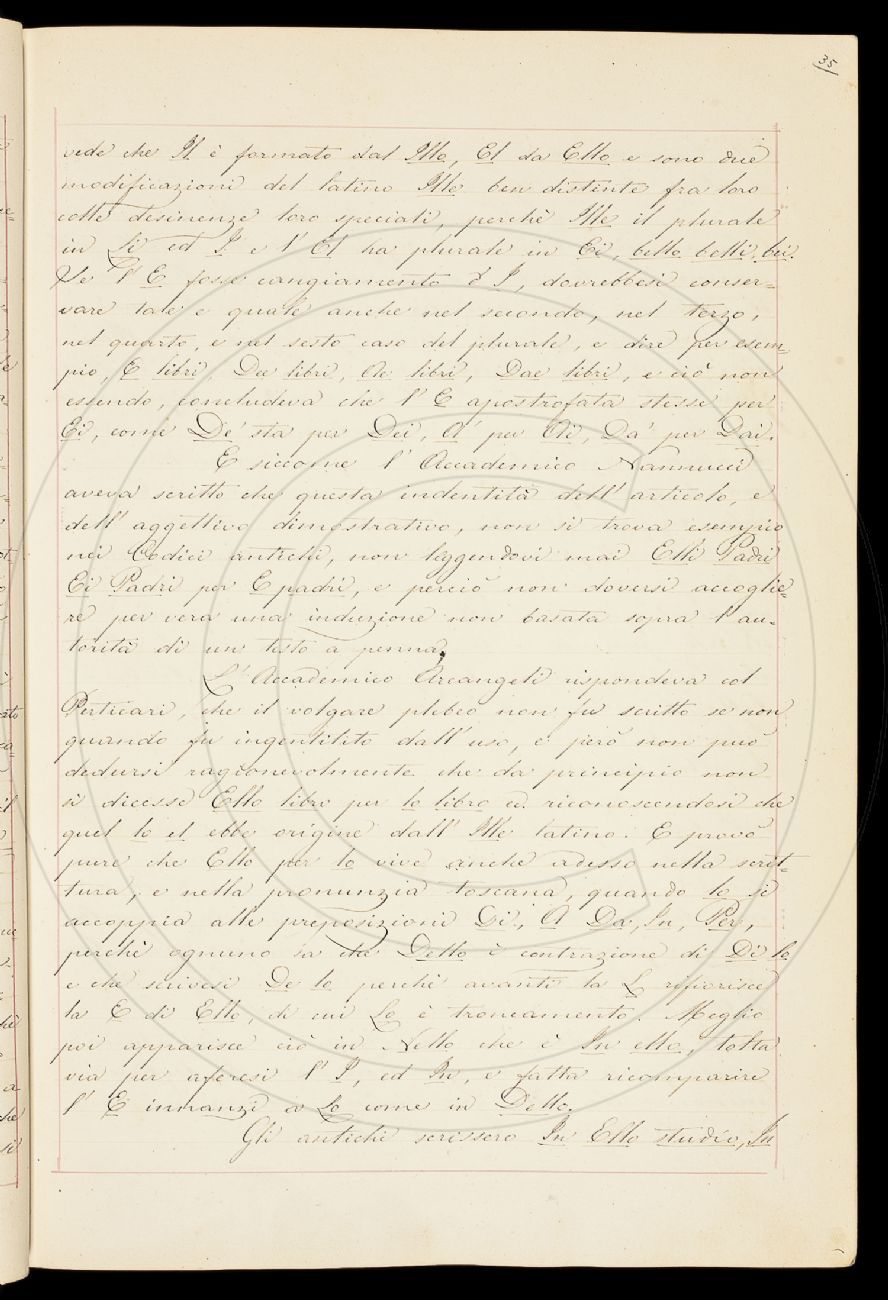 35
vede che Il è formato dal Ille, El da Ello e sono due
modificazioni del latino Ille ben distinte fra loro
colle desinenze loro speciali, perchè Ille il plurale
in Li ed I e l' El ha plurale in Ei, bello belli bei.
Se l' E fosse cangiamento d' I, dovrebbesi conser=
vare tale e quale anche nel secondo, nel terzo,
nel quarto, e nel sesto caso del plurale, e dire per esem=
pio, E libri, Dee libri, Ae libri, Dae libri, e ciò non
essendo, concludeva che l' E apostrofata stesse per
Ei, come De' sta per Dei, A' per Ai, Da' per Dai.
E siccome l' Accademico Nannucci
aveva scritto che questa indentità dell' articolo, e
dell' aggettivo dimostrativo, non si trova esempio
nei Codici antichi, non leggendovi mai Elli Padri
Ei Padri per E padri, e perciò non doversi accoglie=
re per vera una induzione non basata sopra l' au=
torità di un testo a penna;
L' Accademico Arcangeli rispondeva col
Perticari, che il volgare plebeo non fu scritto se non
quando fu ingentilito dall' uso, e però non può
dedursi ragionevolmente che da principio non
si dicesse Ello libro per lo libro ed riconoscendosi che
quel lo el ebbe origine dall' Ille latino. E provò
pure che Ello per lo vive anche adesso nella scrit=
tura, e nella pronunzia toscana, quando lo si
accoppia alle preposizioni Di, A Da, In, Per,
perchè ognuno sa che Dello è contrazione di Di lo
e che scrivesi De lo perchè avanti la L rifiorisce
la E di Ello, di cui Lo è troncamento. Meglio
poi apparisce ciò in Nello che è In ello, tolta
via per aferesi l' I, ed In, e fatta ricomparire
l' E innanzi a Lo come in Dello.
Gli antichi scrissero In Ello studio, In